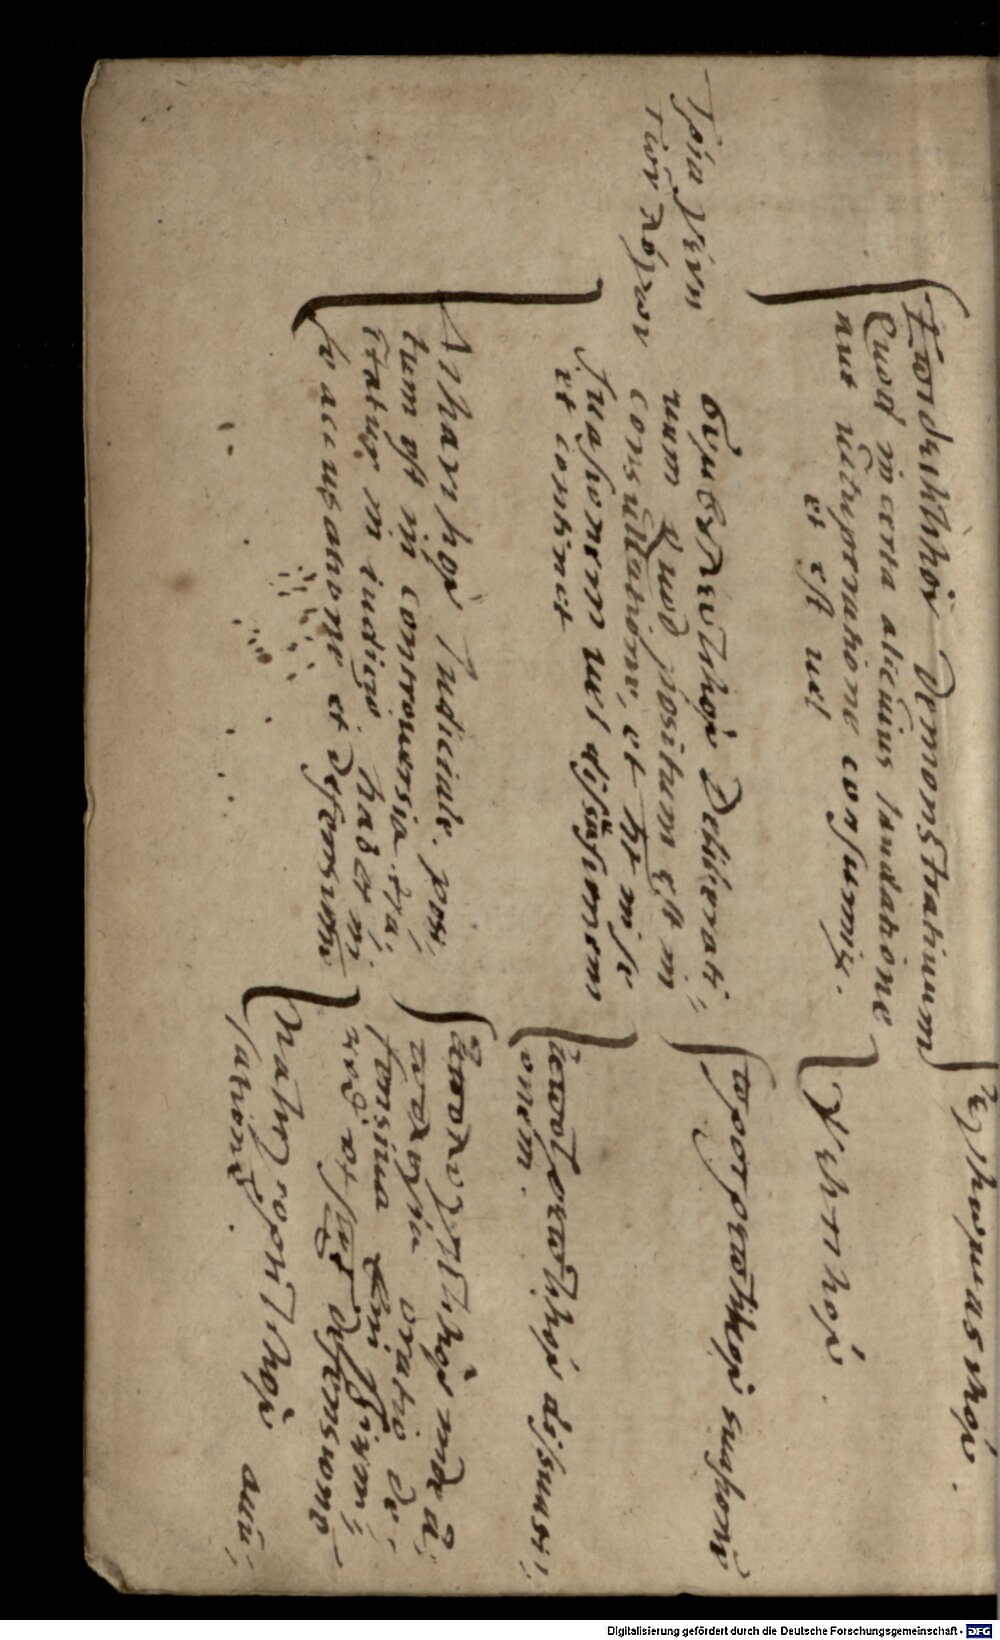 Τρία γένη
τῶν λόγων
Ἐπιδεικτικὸν Demonstratiuum
Quod in certa alicuius laudatione
aut uituperatione consumit.
et est uel
ἐγκωμιαστικόν.
ψεκτικόν.
συμβολευτικὸν Deliberati=
uum Quod positum est in
consultatione, et in se
suasionem uel dissuasionem
et continet
προτρεπτικὸν suasoriũ
ἀποτρεπτικὸν dissuasi=
onem.
Δικανικὸν Iudiciale. posi=
tum est in controuersia
in iudicio habet in
se accusatione et defensione
ἀπολογητικὸν unde ἀ=
πολογία oratio de=
fensiua
defensione
κατηγορητικὸν accu=
satione.
Digitalisierung gefördert durch die Deutsche Forschungsgemeinschaft - DFG